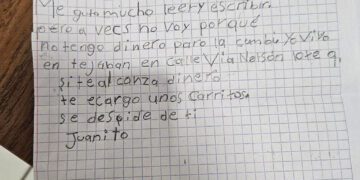 Me gusta mucho leer y escribir
pero a vecs no voy porque
no tengo dinero para la cumbu yo vivo
en tejaban en calle Via Nelson lote 9,
si te alcanza dinero
te ecargo unos carritos.
se despide de ti
Juanito